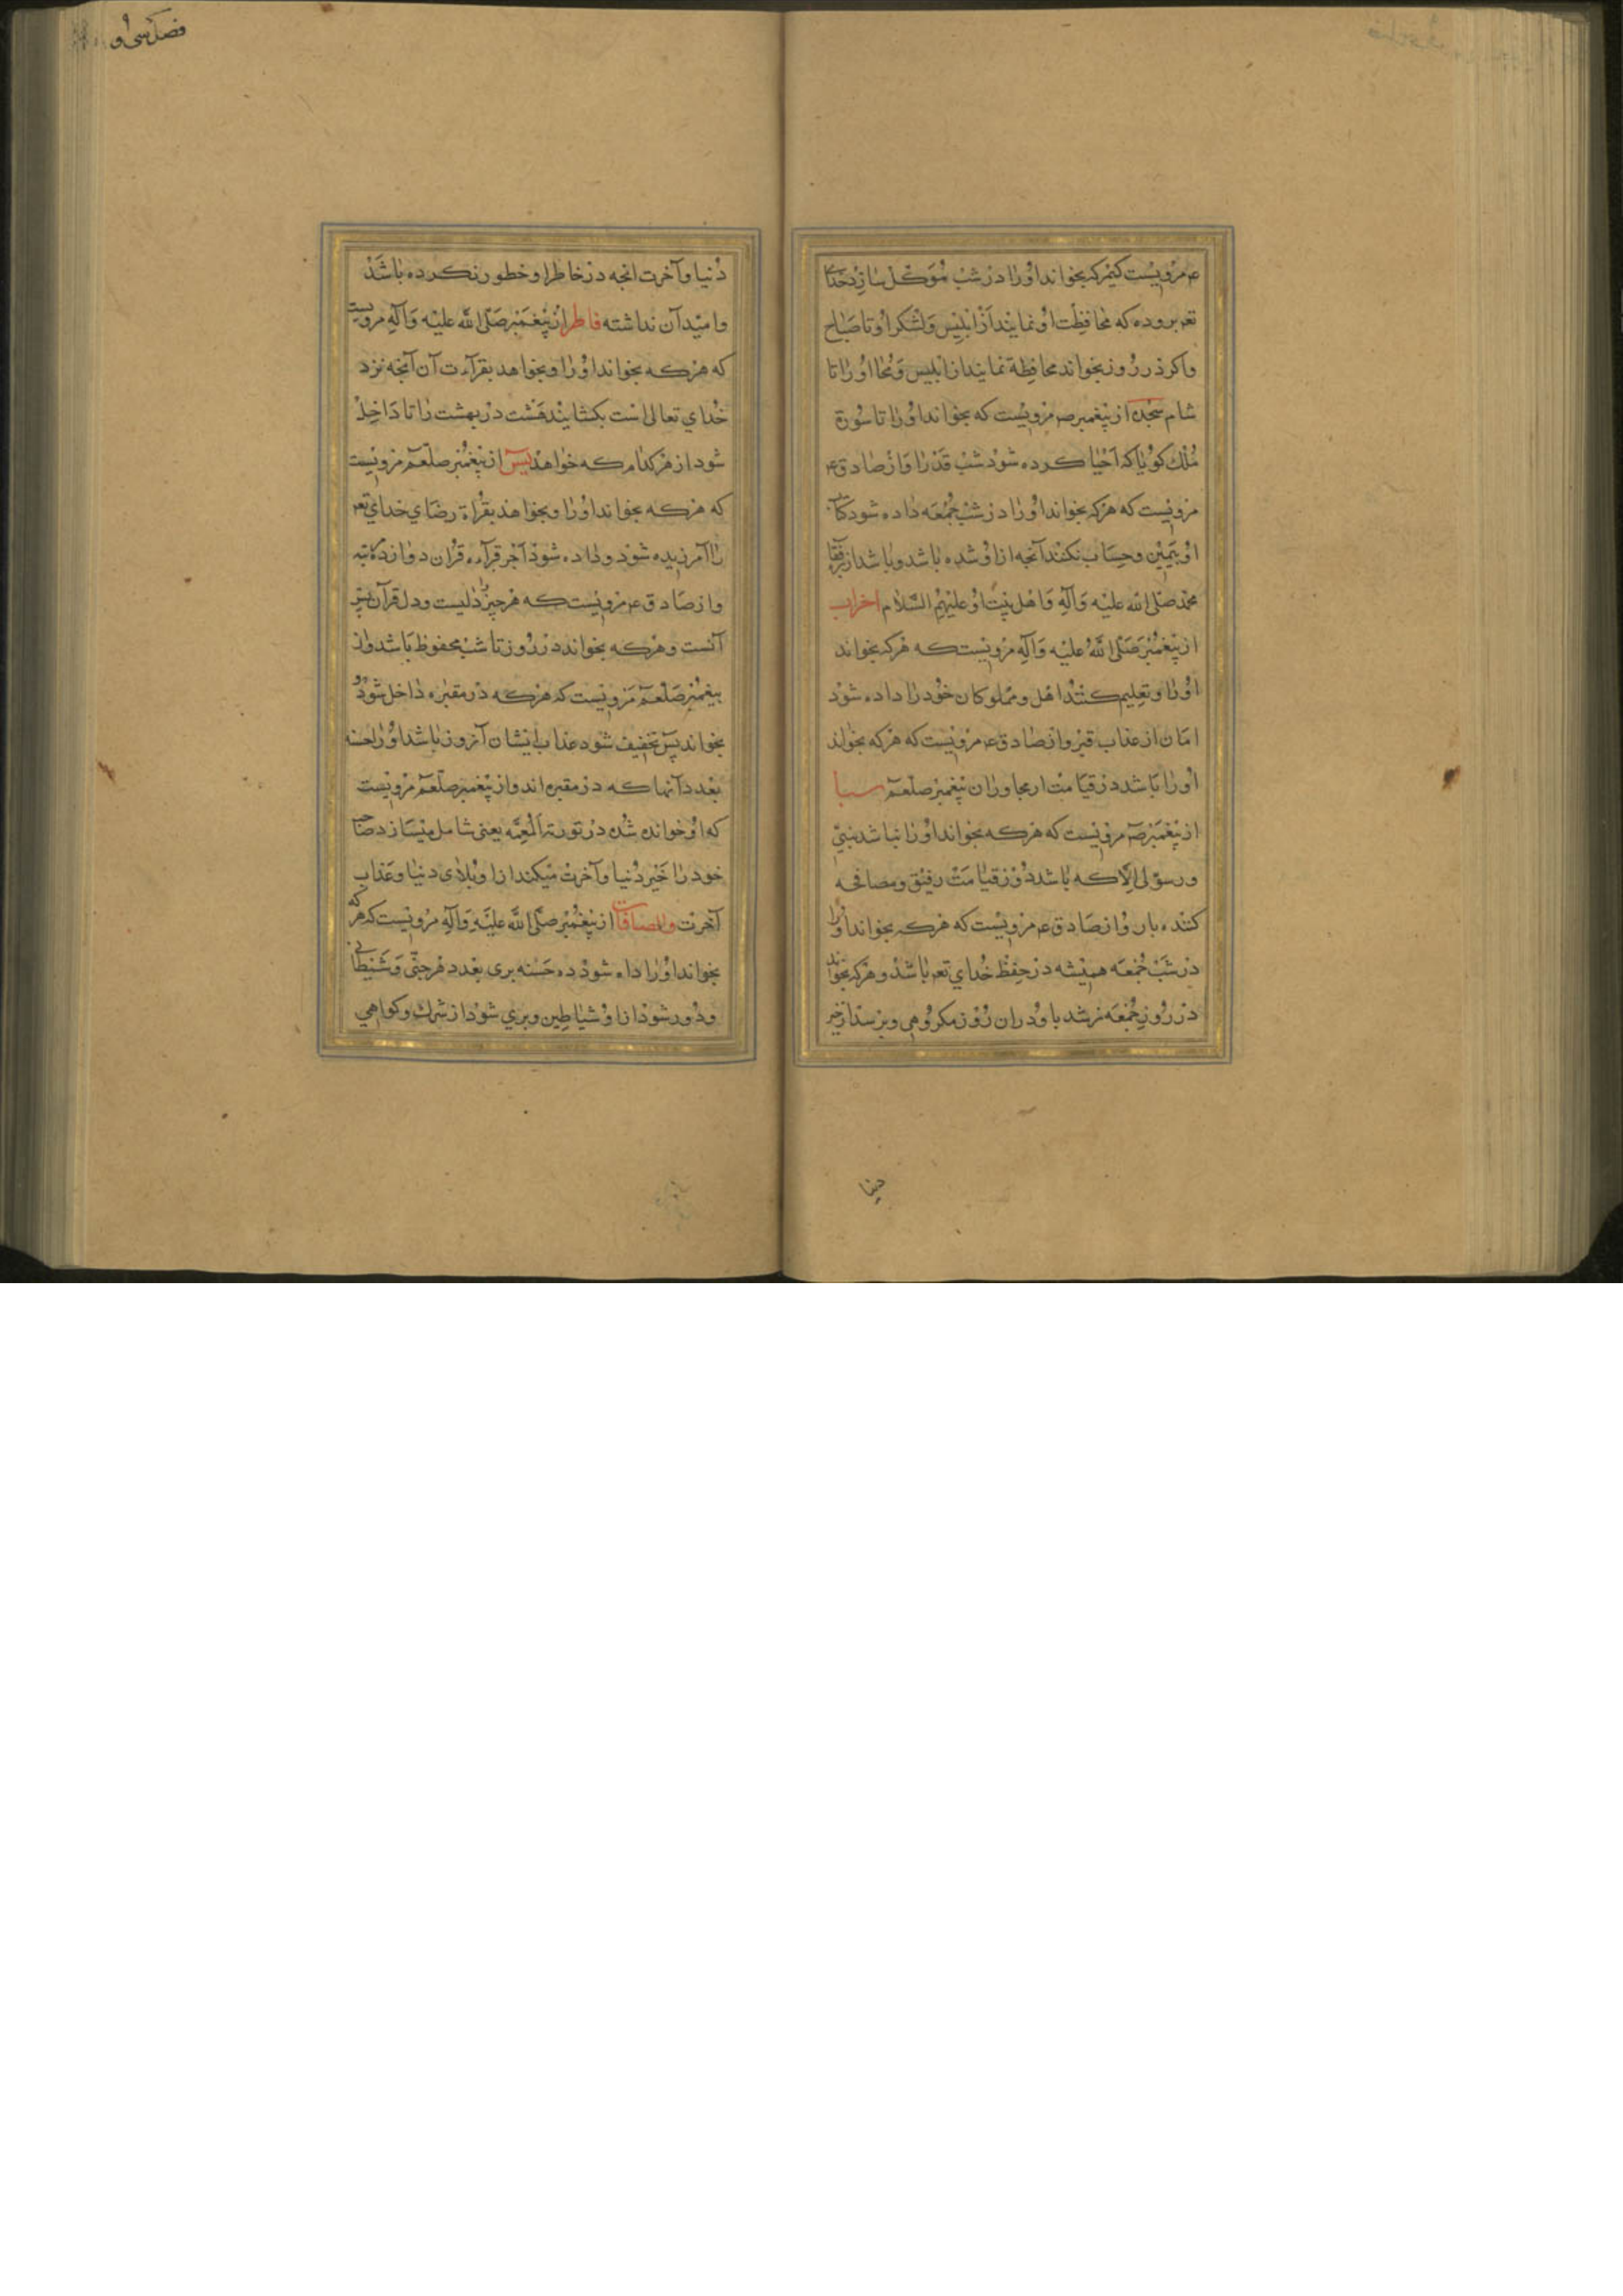 ع مرویست که هرکه بخواند اورا در شب موکل سازد خدای
تعه برو ده که محافظت او نمایند از ابلیس و لشکر او تا صباح
واکر در روز بخواند محافظة نمایند از ابلیس و اورا تا
شام سجده از پیغمبر ص مرویست که بخواند اورا تا سورة
ملک کویا که احیا کرده شود شب قدر را و از صادق ع
مرویست که هرکه بخواند اورا در شب جمعه داده شود کتاب
او بیمین و حساب نکنند آنچه از او شده باشد و باشد از رفقا
محمد صلی الله علیه وآله واهل بیت او علیهم السلام احزاب
از پیغمبر صلی الله علیه وآله مرویست که هرکه بخواند
اورا و تعلیم کند اهل و مملوکان خود را داده شود
امان از عذاب قبر و از صادق ع مرویست که هرکه بخواند
اورا باشد در قیامت از مجاوران پیغمبر صلعم سبا
از پیغمبر ص مرویست که هرکه بخواند اورا نباشد نبیی
ورسولی الا که باشد در روز قیامت رفیق و مصافحه
کننده با او و از صادق ع مرویست که هرکه بخواند اورا
در شب جمعه همیشه در حفظ خدای تعه باشد و هرکه بخواند
در روز جمعه نرسد باو دران روز مکروهی و برسد از خیر
دنیا
فصل سی و
دنیا وآخرت انچه در خاطر او خطور نکرده باشد
وامید آن نداشته فاطر از پیغمبر صلی الله علیه وآله مرویست
که هرکه بخواند اورا وبخواهد بقرآءت آن آنچه نزد
خدای تعالی است بکشایند هشت در بهشت را تا داخل
شود از هر کدام که خواهد یس از پیغمبر صلعم مرویست
که هرکه بخواند اورا وبخواهد بقراة رضای خدای تعه
را آمرزیده شود و داده شود اجر قرآءه قران دوازده مرتبه
و از صادق ع مرویست که هر چیز را دلیست و دل قرآن یس
آنست و هرکه بخواند در روز تا شب محفوظ باشد و از
پیغمبر صلعم مرویست که هرکه در مقبره داخل شود و
بخواند یس تخفیف شود عذاب ایشان آنروز باشد اورا حسنه
بعدد آنها که در مقبره اند و از پیغمبر صلعم مرویست
که او خوانده شده در توریة المعمه یعنی شامل میسازد صاحب
خود را خیر دنیا وآخرت میکند از او بلای دنیا و عذاب
آخرت والصافات از پیغمبر صلی الله علیه وآله مرویست که هرکه
بخواند اورا داده شود ده حسنه بری بعدد هر جنی و شیطانی
و دور شود از او شیاطین و بری شود از شرک و کواهی